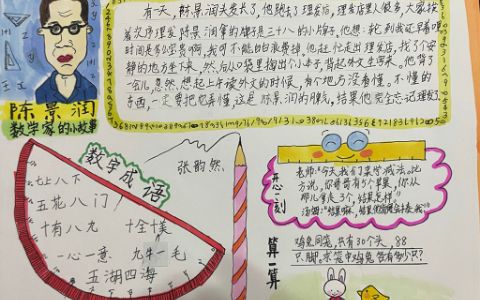 有一天,陈景润头发长了,他跑去了理发店,理发店里人很多,大家按
着次序理发,陈景润拿的牌子是三十八的小牌子,他想:轮到我还早着哩
时间是多么宝贵啊,我可不能白白浪费掉,他赶忙走出理发店,找了个安
静的地方坐下来,然后从口袋里掏出个小本子,背起外文生字来。他背了
一会儿,忽然想起上午读外文的时候,有个地方没看懂。不懂的
东西,一定要把它弄懂,这是陈景润的脾气,结果他完全忘记理发了
陈景润
数学家的小故事
数字成语
张昀然
七上八下
五花八门
十有八九 十全十美
一心一意 九牛一毛
五湖四海
开心一刻
老师:"今天我们来学减法。比
方说,你哥哥有5个苹果,你从
那儿拿走3个,结果怎样?"
算一算
鸡兔同笼,共有30个头,88
只脚。求笼中鸡兔各有多少只?